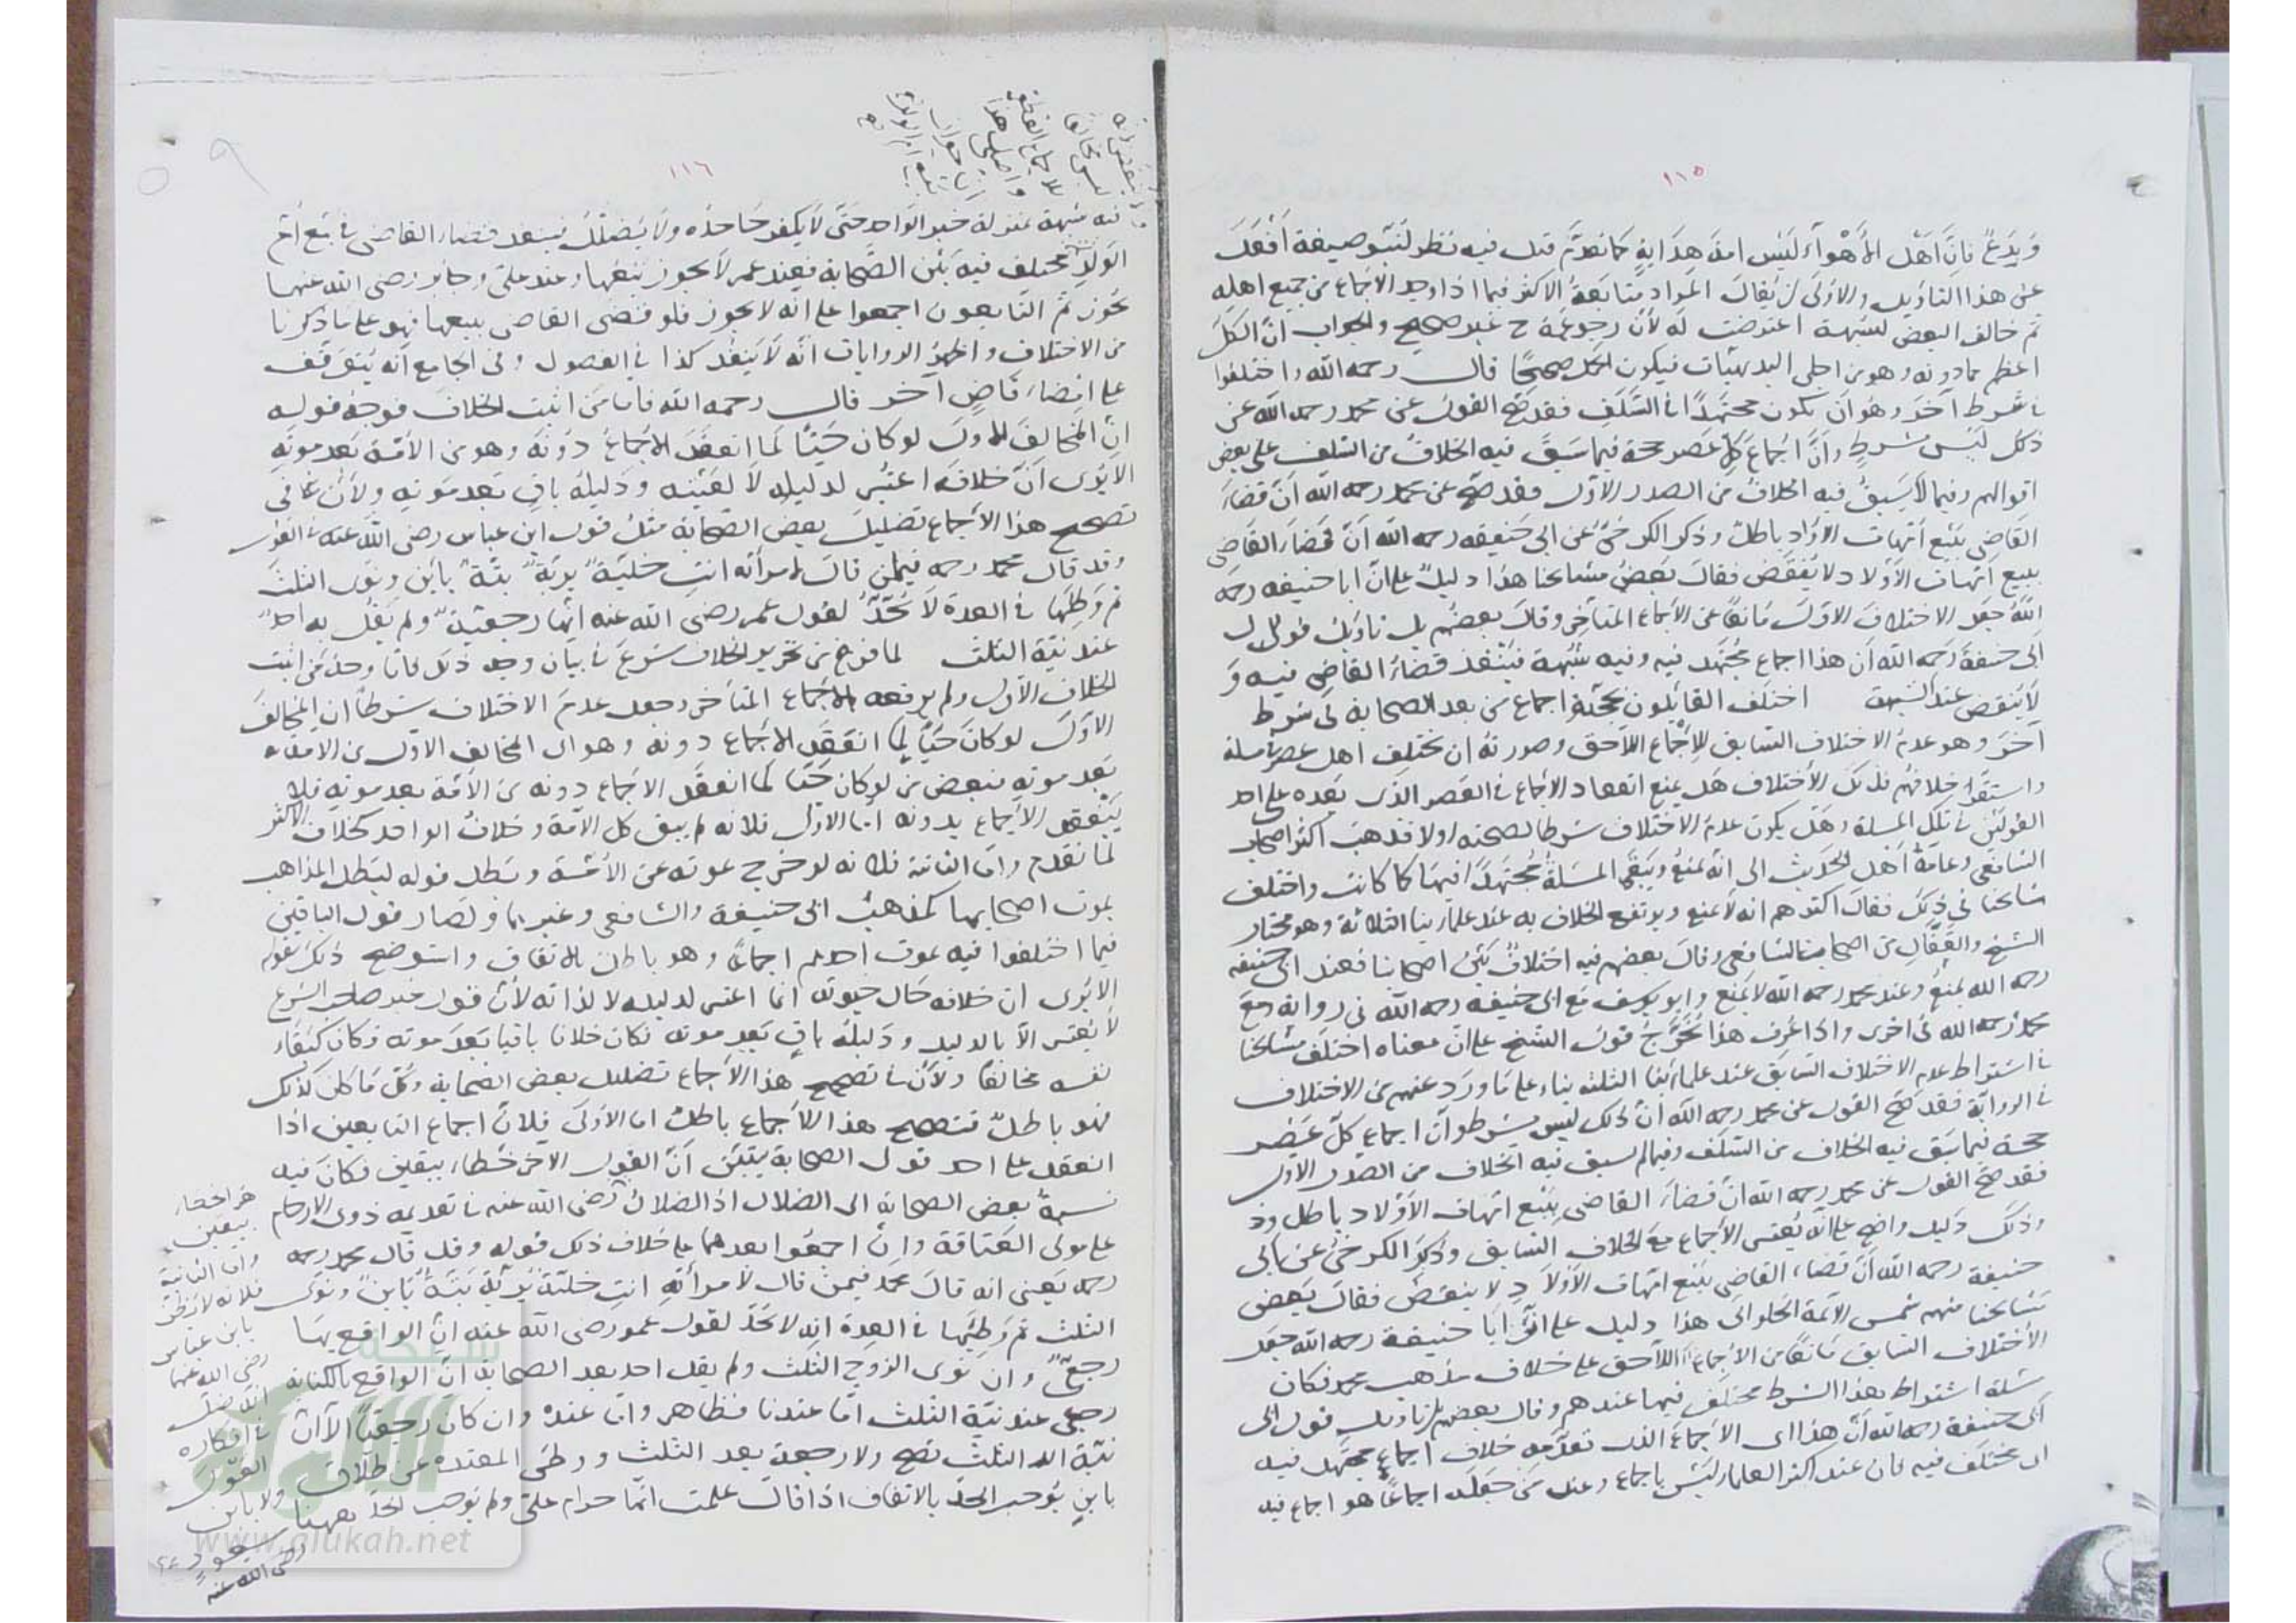 ١١٥
وَيَدَعُ فَاِنَّ اَهْلَ الأَهْوَآءِ لَيْسَ امة هِدَايةٍ كما تقدَّم قيل فيه نظر لنُبُوّ صيغة اَفْعَلَ
عن هذا التاويل والاولى ان يُقال المراد متابعَةُ الاكثر فيما اذا وجد الاجماع من جميع اهله
ثم خالف البعض لشبهة اعترضت له لأن رجوعَهُ ح غير صحيح والجواب انّ الكلّ
اعظم مما دونه وهو من اجلى البديهيّات فيكون الكل صحيحًا قال رحمه الله واختلفوا
في شرط آخَرَ وهُو اَن يكون مجتهدًا في السَّلَفِ فقد صَحّ القول عن محمد رحمه الله عن
ذلك ليْسَ بشرطٍ وانَّ اجماعَ كلّ عَصر حجة فيما سَبَقَ فيه الخلافُ من السَّلَفِ على بعض
اقوالهم وفيما لم يَسْبِقُ فيه الخلافُ من الصدر الاوّل فقد صَحّ عن محمد رحمه الله اَنّ قضَاءَ
القَاضِي بِبَيْعِ اُمّهات الاَولاد باطلٌ وذكر الكرخيّ عَن ابي حنيفه رحمه الله اَنّ قضَاءَ القَاضِي
ببيع اُمّهاتِ الاَوْلاد لا يُنْقَض فقالَ بَعضُ مشايخنا هذا دليلٌ على انّ ابا حنيفه رحمه
اللهُ جعَل الاختلافَ الاوّلَ مَانعًا عن الاجماع المتأخّر وقالَ بعضُهُم بل تاويل قول
ابى حنيفةَ رَحمه الله اَن هذا اجماع مُجْتهَد فيه وفيه شُبْهة فيَنْفذ قضاءُ القاضِى فيه وَ
لا يُنقض عند الشبهة اختلَف القائلون بحجّيّة اجماع من بعد الصحابة فى شرط
آخَرَ وهو عدمُ الاختلاف السّابق للإجماع اللاحق وصورتهُ ان تختلِف اهل عصرٍ في مسئلة
واستقرّ خلافهُم فذلك الاختلاف هَل يمنع انعقاد الاجماع في العَصر الذى بَعْده على احد
القولَيْن في تلكَ المسئلة وهَل يكون عدمُ الاختلاف شرطًا لصحته اولا فذهبَ اكثر اصحاب
الشافعى وعامّةُ اَهل الحَديث الى انّه يمنعُ ويَبْقى المسئلةُ مُجْتهدًا فيها كما كانت واختلف
مشايخنا في ذلِكَ فقالَ اكثرهم انه لا يمنع ويرتفع الخلاف به عند علمائنا الثلاثة وهو مختار
الشيخ والقفّالِ من اصحاب الشافعى وقال بعضهم فيه اختلافٌ بَيْن اصحابنا فعند ابى حنيفه
رحمه الله يمنعُ وعند محمد رحمه الله لا يَمْنع وابو يوسف مع ابى حنيفه رحمه الله فى رواية ومَعَ
محمد رحمه الله في اخرى واذا عُرِف هذا تُخَرَّجُ قولُ الشيخ على انّ معناه اختلَف مشايخنا
في اشتراط عدم الاختلاف السّابق عند علمائنا الثلثه بناء على ما وَرَد عنهم من الاختلاف
في الرواية فقد صَحّ القول عن محمد رحمه الله انّ ذلك ليس بشرط وانّ اجماع كلّ عَصْر
حجة فيما سَبَق فيه الخلاف من السَّلَف وفيما لم يسبق فيه الخلاف من الصدر الاول
فقد صحَّ القول عن محمد رحمه الله انّ قضاءَ القاضى بِبَيْع امّهات الاَوْلاد باطل
وذلك دَليل واضح على انّه يُعتبر الاجماع مع الخلاف السّابق وذُكِرَ الكرخيُّ عن ابى
حنيفة رحمه الله اَنَّ قضاء القاضِى بِبَيْع امّهات الاَوْلادِ لا ينقضُ فقالَ بَعض
مَشايخنا منهم شمس الائمّة الحلوانى هذا دليل على انّ اَبَا حنيفة رحمه الله جعَل
الاختلاف السّابق مَانعًا من الاجماع اللاّحق على خلاف مذهب محمد فكان
مسئلة اشتراط هذا الشرط مختلف فيها عندهم وقال بعضهم بل تاويل قول ابى
حنيفة رحمه الله اَنّ هذا اى الاجماع الذى تقدّمه خلاف اجماع مجتهَد فيه
اى مختلَف فيه فان عند اكثر العلماء ليْسَ باجماع وعند مَن جَعَلَه اجماعًا هو اجماع فيه
١١٦
فيه شبهة بمنزلة خبر الواحد حتّى لا يكفر جَاحدُه ولا يُضَلّلُ فينفذ قضاء القاضى في بيع اُمّ
الوَلد مختلف فيه بَيْن الصَّحابة فعند عمر لا يجوز بَيعُها وعند علىّ وجابر رضى الله عنهما
يجُوز ثمّ التابعون اجمعوا على انّه لا يجوز فلو قضى القاضى ببيعها فهو على ما ذكرنا
من الاختلاف واظهرُ الروايات انّه لا يَنْفُذ كذا في الفصول وفى الجامع انّه يُتوقّف
على امضاء قاضٍ آخر قال رحمه الله فامّا مَن اثبت الخلافَ فوجهُ قوله
انّ المخالفَ الاوّلَ لو كان حَيًّا لَما انعقَدَ الاجماعُ دُونَهُ وهو من الأمّة بَعد موته
الا يُرى اَنّ خلافَه اعتُبر لدليله لا لعَيْنِه ودَليلُه باقٍ بعد مَوته ولأنّ فى
تصحيح هذا الاجماع تضليلَ بعضِ الصّحابة مثلُ قول ابن عباس رضى الله عنه في العَوْل
وقد قال محمد رحمه فيمن قالَ لامرأته انتِ خليّة بريّة بتّة باين ونوى الثلث
ثم وَطِئَها في العدة لا يُحَدُّ لقول عمر رضى الله عنه انّها رجعيّةٌ ولم يَقُل به احدٌ
عند نيّة الثلث لما فرغ من تحرير الخلاف شرعَ في بيان وجه ذلك فامّا وجهُ مَن اثبت
الخلاف الاوّل ولم يرفعه بالاجماع المتأخر وجعل عدمَ الاختلاف شرطًا ان المخالف
الاوّلَ لو كانَ حَيًّا لما انعَقد الاجماع دونه وهو اى المخالف الاول من الامّة
بَعد موته فبعض مَن لو كان حَيًّا لما انعقد الاجماع دونه من الامّة بعد موته فلا
يَنْعقد الاجماع بدونه امّا الاوّل فلانه لم يبق كل الامّة وخلافُ الواحد كخلاف الاكثر
لما تقدّم وامّا الثانية فلانه لو خرج بموته عن الأمّة وبَطل قوله لبَطل المذاهب
بموت اصحابها كمذهب ابى حنيفة والشافعى وغيرهما ولصَار قول الباقين
فيما اختلفوا فيه بموت احدهم اجماعًا وهو باطل بالاتفاق واستوضح ذلكَ بقوله
الا يُرى ان خلافه حَال حيوته انما اعتبر لدليله لا لذاته لأنّ قول غير صاحب الشرع
لا يُعتبر الاّ بالدليل ودَليلُه باقٍ بَعد موته فكان خلافا باقيا بَعْدَ موته وكان كبَقَاء
نفسه مخالفًا ولأنّ في تصحيح هذا الاجماع تضليل بعض الصّحابة وكلّ مَا كان كذلك
فهو باطلٌ فتصحيح هذا الاجماع باطلٌ اما الاولى فلانّ اجماع التابعين اذا
انعقد على احد قولى الصحابة يتبيّن اَنّ القول الآخر خَطاء بيقين فكانَ فيه
نسبةُ بعض الصحابة الى الضلال اذ الضلالُ رضى الله عنه في تقديمه ذوى الارحام
على مولى العَتاقة وان اجمعُوا بعدهما على خلاف ذلك قوله وقد قال محمد رحمه
رحمه يَعنى انه قالَ محمد فيمن قال لامرأتِه انتِ خليّة بريّة بَتّة باين ونوى
الثلث ثم وَطِئَها في العدة انه لا يحَدّ لقول عمر رضى الله عنه انّ الواقع بها
رجعىّ وان نَوى الزوج الثلث ولم يقل احد بعد الصحابة انّ الواقع بالكناية
رجعى عند نيّة الثلث امّا عندنا فظاهر وامّا عندهُ وان كان رجعيًّا الاّ انّ
نيّة الثلث تصح ولا رجعة بعد الثلث ووطىُ المعتدّة عن طلاق
باينٍ يُوجب الحدّ بالاتفاق اذا قالَ علمتُ انّها حرام علىّ ولم يوجب الحدّ ههنا
هو الخطاء
بيقين
وامّا الثانية
فلانه لا يُظنّ
بابن عباس
رضى الله عنهما
انّه ضلّ
في انكاره
العَوْل
ولا بابن
مسعودٍ
رضى الله عنه
شبكة
الألوكة
www.alukah.net